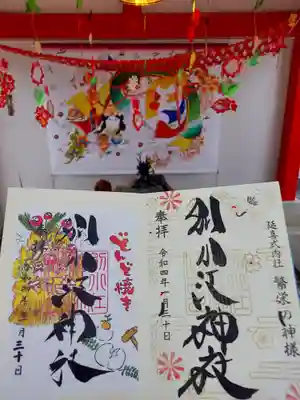 延喜式内社 繁栄の神様
別小江神社
奉拝 令和四年一月三十日
どんど焼き
別小江神社
三十日